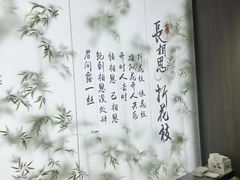 長相思 折花枝
折花枝 恨花枝
准拟花开人共卮
开时人去时
怕相思 已相思
轮到相思没处辞
眉间露一丝